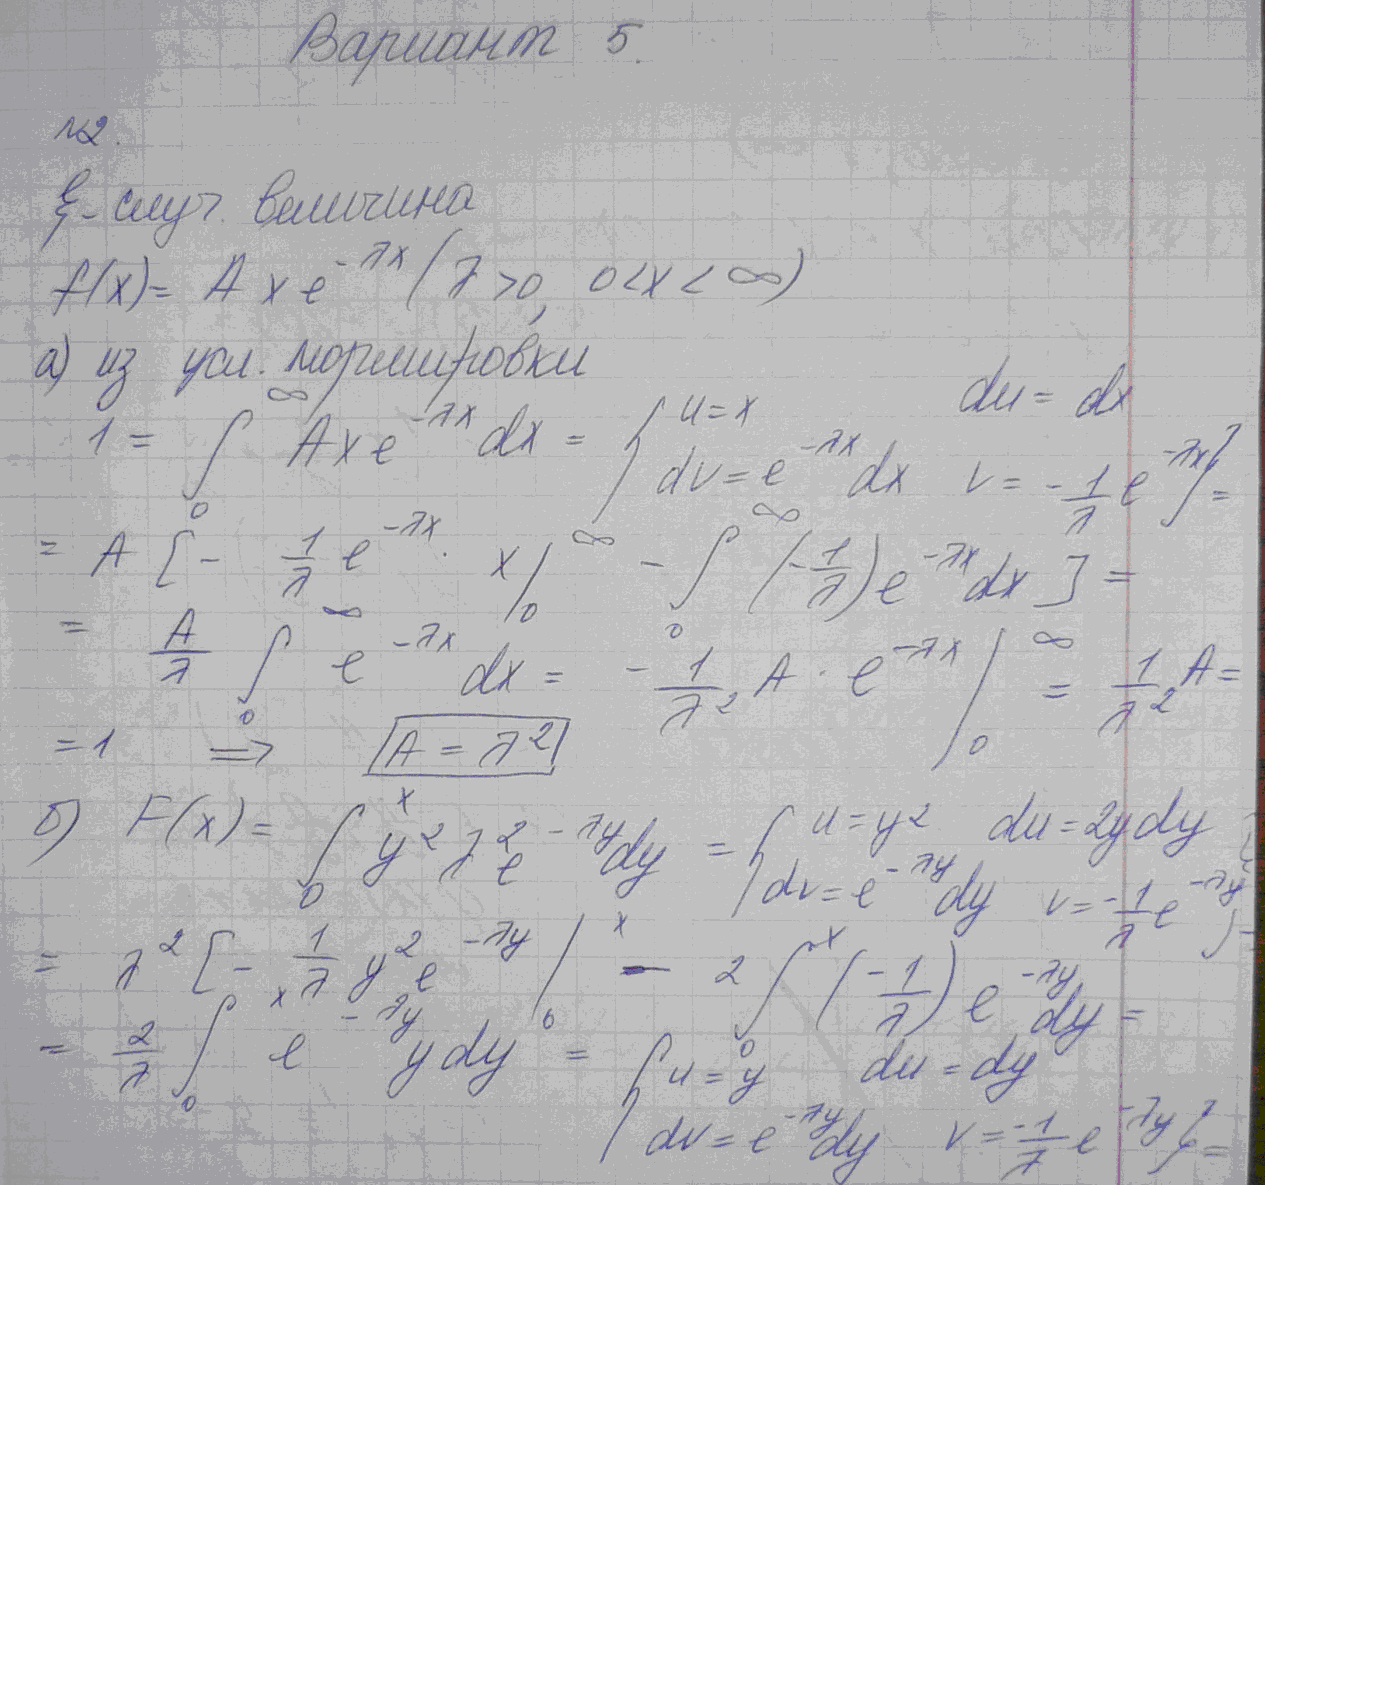 Вариант 5.
№2.
ξ - случ. величина
f(x) = A x e^{-λx} (λ>0, 0<x<∞)
а) из усл. нормировки
1 = ∫_0^∞ A x e^{-λx} dx = { u = x du = dx
dv = e^{-λx} dx v = -1/λ e^{-λx} } =
= A [ - 1/λ e^{-λx} · x |_0^∞ - ∫_0^∞ (-1/λ) e^{-λx} dx ] =
= A/λ ∫_0^∞ e^{-λx} dx = - 1/λ² A · e^{-λx} |_0^∞ = 1/λ² A =
= 1 ⇒ A = λ²
б) F(x) = ∫_0^x y² λ² e^{-λy} dy = { u = y² du = 2y dy
dv = e^{-λy} dy v = -1/λ e^{-λy} } =
= λ² [ - 1/λ y² e^{-λy} |_0^x - 2 ∫_0^x (-1/λ) e^{-λy} dy =
= 2/λ ∫_0^x e^{-λy} y dy = { u = y du = dy
dv = e^{-λy} dy v = -1/λ e^{-λy} } =